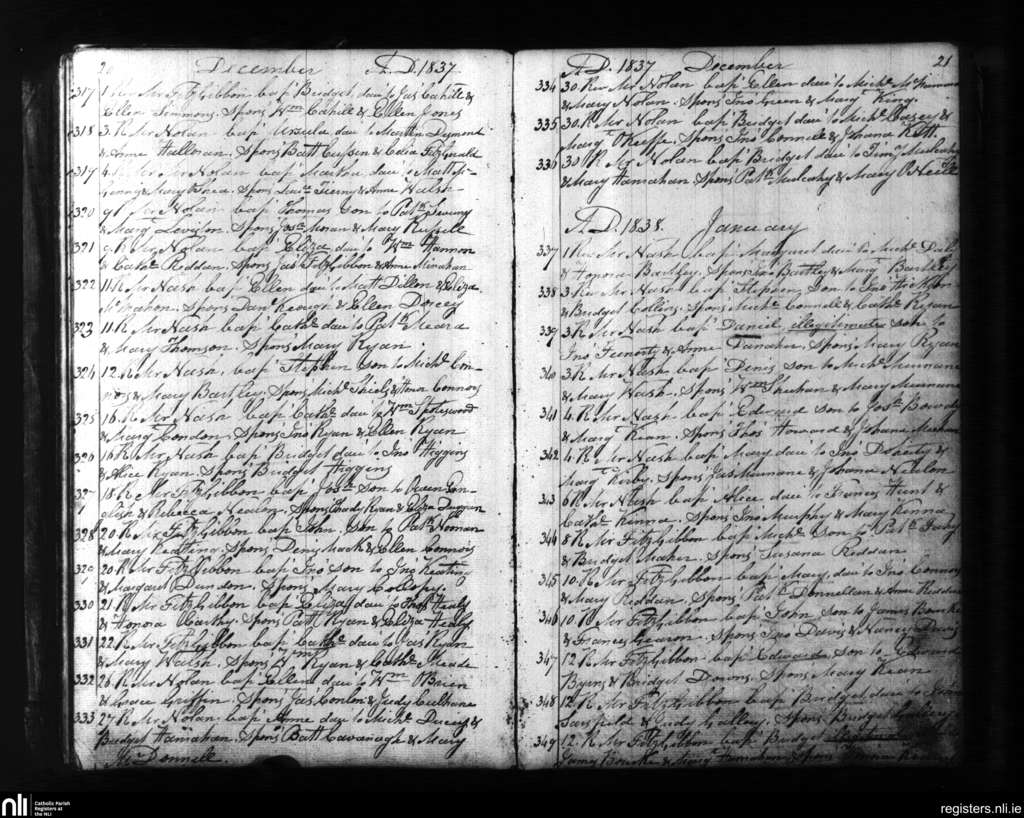 20 December A.D. 1837
317 1 Rev Mr FitzGibbon bap Bridget dau to Jas Cahill &
Ellen Simmons. Spons Wm Cahill & Ellen Jones
318 3. R Mr Nolan bap Ursula dau to Martin Dymond
& Anne Halloran. Spons Batt Cussen & Celia FitzGerald
319 4. R Mr Nolan bap dau to Matt
& Mary Brea. Spons Tierny & Anne Walsh
320 9 Nolan bap Thomas son to Patk
& Marg Spons Jos. Moran & Mary Russell
321 9. R Mr Nolan bap Eliza dau to Wm Hannon
& Cathe Reddan. Spons Jas FitzGibbon & Anne Minahan
322 11. R Mr Nash bap Ellen dau to Matt Dillon & Eliza
McMahon. Spons Danl Keough & Ellen Dorcey
323 11. R Mr Nash bap Cathe dau to Patk Meara
& Mary Thomson. Spons Mary Ryan
324 12. R Mr Nash bap Stephen son to Michl Con-
nors & Mary Bartley. Spons Michl Shiels & Honor Connors
325 16. R Mr Nash bap Cathe dau to Wm
& Marg Condon. Spons Jno Ryan & Ellen Ryan
326 16. R Mr Nash bap Bridget dau to Jno Higgins
& Alice Ryan. Spons Bridget Higgins
327 18. R Mr FitzGibbon bap Joseph son to Owen
& Rebecca Nealon. Spons Thady Ryan & Eliza Duggan
328 20 R Mr FitzGibbon bap John son to Patk Honan
& Mary Keatting. Spons Denis Mack & Ellen Connors
329 20. R Mr FitzGibbon bap Jno son to Jno Keating
& Margaret Dundon. Spons Mary Gollopy
330 21. R Mr FitzGibbon bap Eliza dau to Thos Healy
& Honora Carthy. Spons Patt Ryan & Eliza Healy
331 22. R Mr FitzGibbon bap Cathe dau to Jas Ryan
& Mary Walsh. Spons Wm Ryan & Cathe Meade
332 26. R Mr Nolan bap Ellen dau to Wm OBrien
& Griffen. Spons Jas Conlon & Judy Culhane
333 27. R Mr Nolan bap Anne dau to Michl Ducey &
Bridget Hanrahan. Spons Batt Cavanagh & Mary
McDonnell.
A.D. 1837 December 21
334 30 Rev Mr Nolan bap Ellen dau to Michl McNamara
& Mary Nolan. Spons Jno Green & Mary King.
335 30. R Mr Nolan bap Bridget dau to Michl Casey &
Marg OKeeffe. Spons Jno Connell & Johana Kett.
336 30 R. Mr Nolan bap Bridget dau to Timy Mulcahy
& Mary Hanrahan. Spons Patk Mulcahy & Mary ONeill
A.D. 1838. January
337 1 Rev Mr Nash bap Margaret dau to Michl
& Honora Bartley. Spons Bartley & Marg Bartley
338 3. Rev Mr Nash bap Stephen son to Jno
& Bridget Collins. Spons Michl Connell & Cathe Ryan
339 3 R Mr Nash bap Daniel, illegitimate son to
Jno Finerty & Anne Danaher. Spons Mary Ryan
340 3 R Mr Nash bap Denis son to Michl Munnane
& Mary Wash. Spons Wm Sheehan & Mary Munnane
341 4. R Mr Nash bap Edward son to Jos
& Marg Kean. Spons Thos Howard & Johana Meehan
342 4. R Mr Nash bap Mary dau to Jno Doherty &
Marg Kirby. Spons Jas Munnane & Johana Nealon
343 6 R Mr Nash bap Alice dau to Francis Hunt &
Cathe Kenna. Spons Jno Murphy & Mary Kenna
344 8. R Mr FitzGibbon bap Michl son to Patk
& Bridget Maher. Spons Susana Reddan
345 10. R Mr FitzGibbon bap Mary dau to Jno Connors
& Mary Reddan. Spons Patk Donnellan & Anne Reddan
346 10. R Mr FitzGibbon bap John son to James Bourke
& Frances Gearon. Spons Jno Davis & Nancy Davis
347 12. R Mr FitzGibbon bap Edward son to Edward
Byrns & Bridget Downs. Spons Mary Kean
348 12. R Mr FitzGibbon bap Bridget dau to
Sarsfield & Judy Galley. Spons Bridget
349 12. R Mr FitzGibbon bap Bridget
James Bourke & Mary Hanrahan. Spons
nli Catholic Parish
Registers at
the NLI
registers.nli.ie